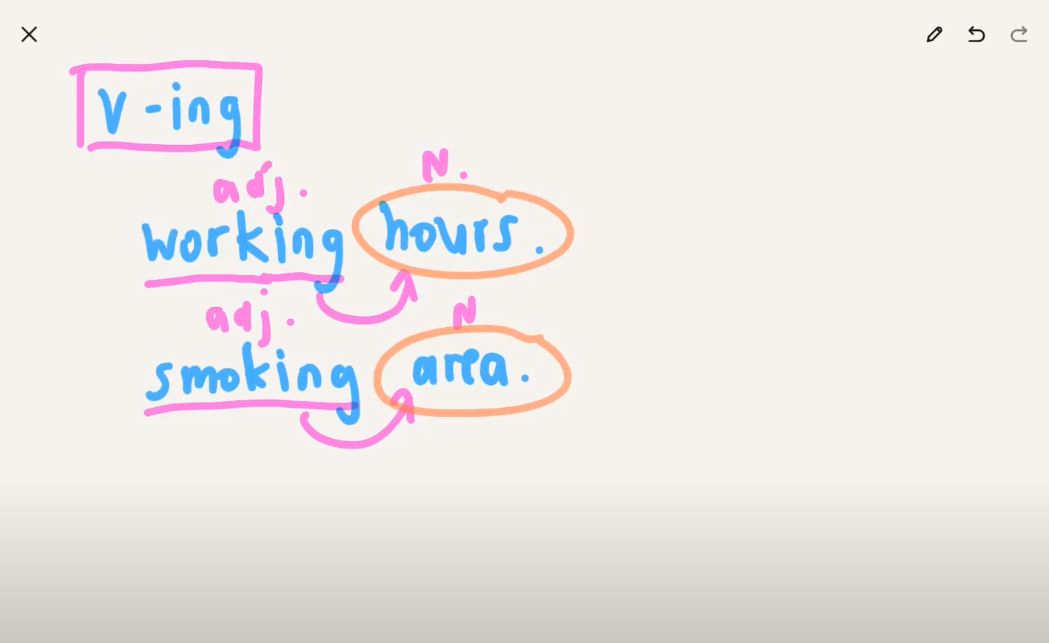 V-ing
adj. N.
working hours.
adj. N
smoking area.